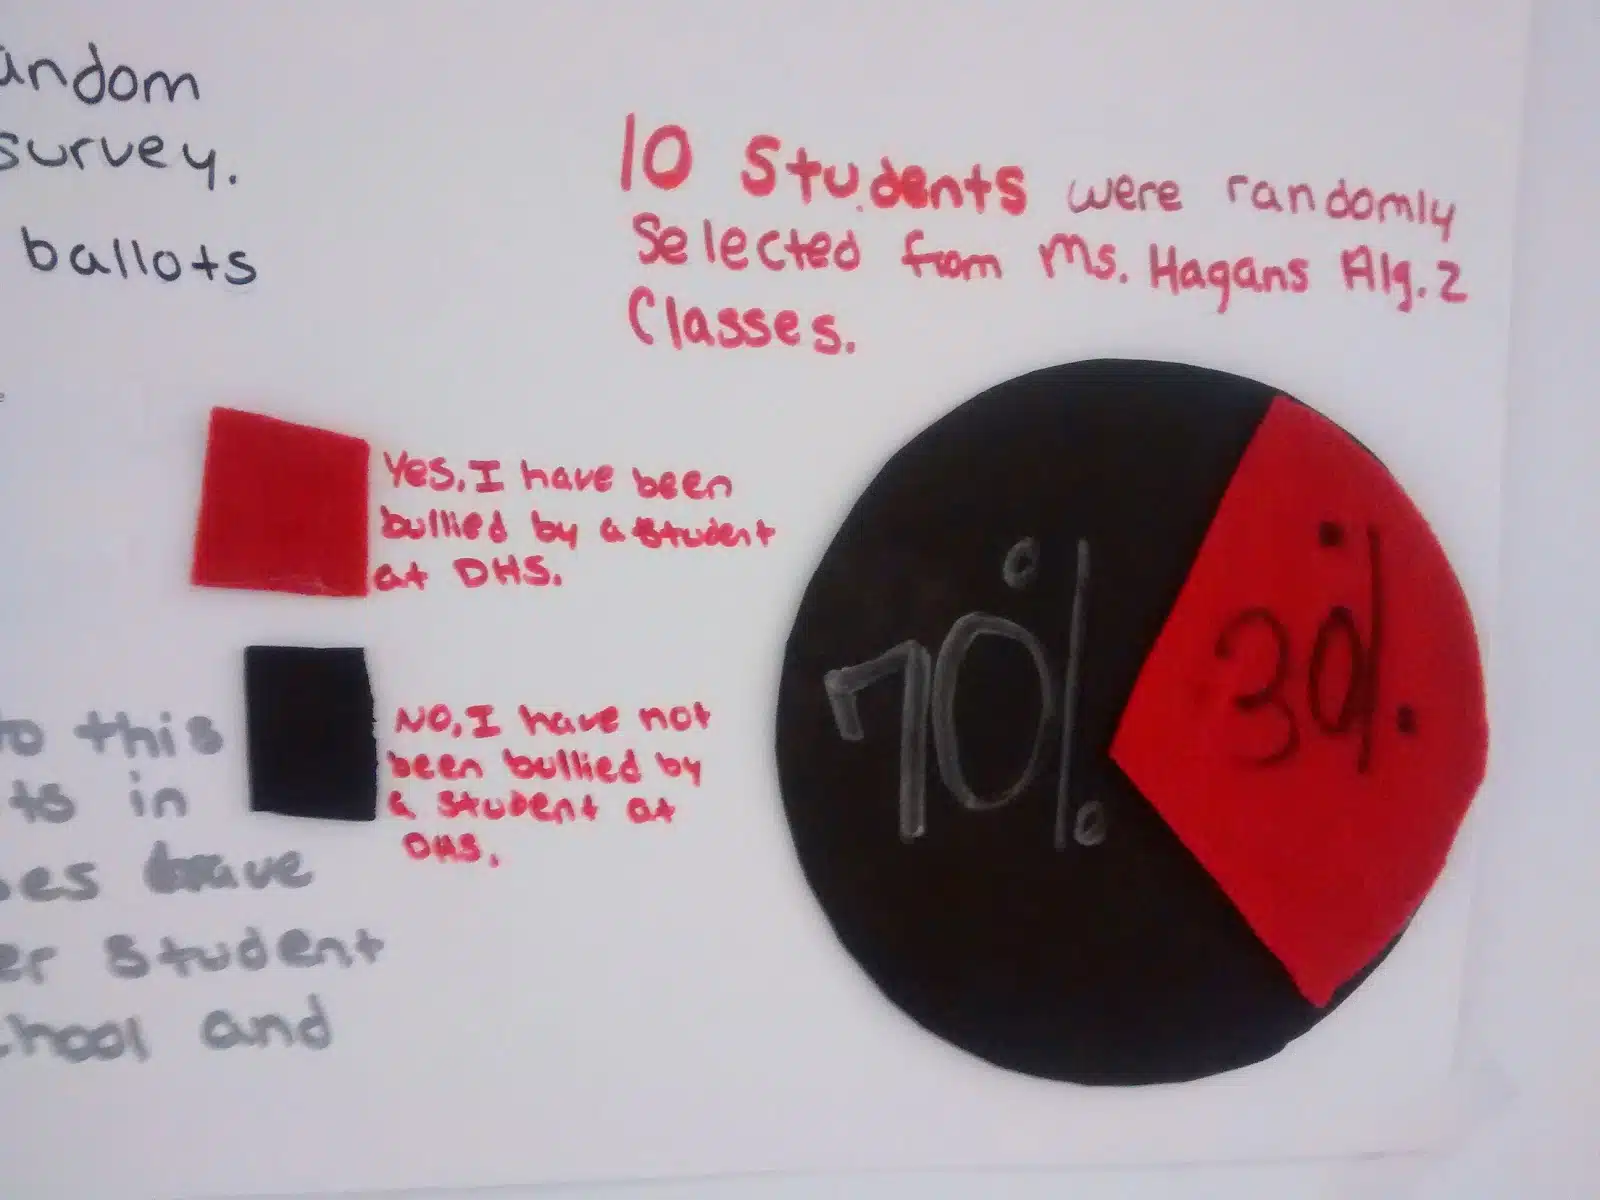 andom
survey.
ballots
10 Students were randomly
Selected from Ms. Hagans Alg. 2
Classes.
Yes, I have been
bullied by a student
at DHS.
No, I have not
been bullied by
a student at
DHS.
70%
30%
to this
ts in
es have
er student
chool and